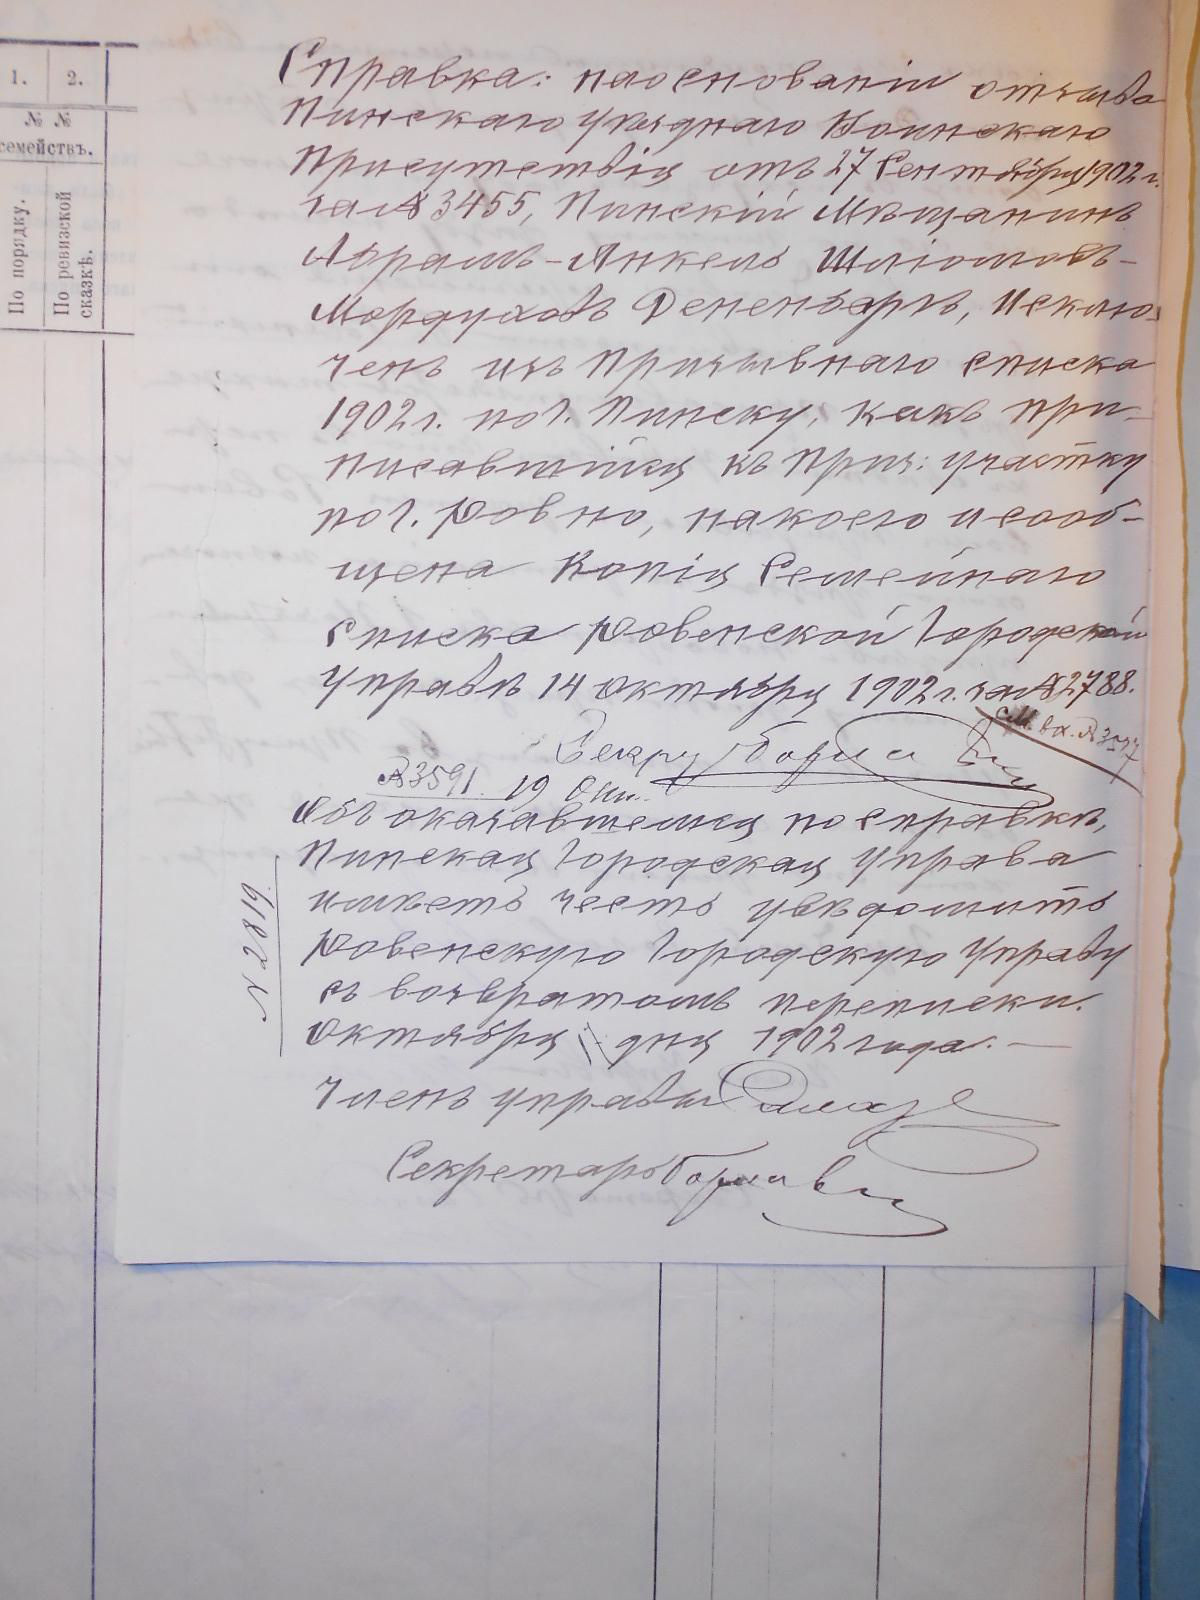 1. 2.
№ №
семействъ.
По порядку.
По ревизской
сказкѣ.
Справка: на основаніи отзыва
Пинскаго Уѣзднаго Воинскаго
Присутствія отъ 27 Сентября 1902 г.
за № 3455, Пинскій Мѣщанинъ
Абрамъ-Янкель Шліомовъ-
Мордуховъ Дененбергъ, исклю-
ченъ изъ Призывнаго списка
1902 г. по г. Пинску, какъ при-
писавшійся къ Приз: участку
по г. Ровно, на коего и сооб-
щена Копія Семейнаго
Списка Ровенской Городской
Управѣ 14 Октября 1902 г. за № 2788.
№ 3591. 19 Окт.
Объ оказавшемся по справкѣ,
Пинская Городская Управа
имѣетъ честь увѣдомить
Ровенскую Городскую Управу
съ возвратомъ переписки.
Октября дня 1902 года. —
Членъ управы
Секретарь
№ 2819